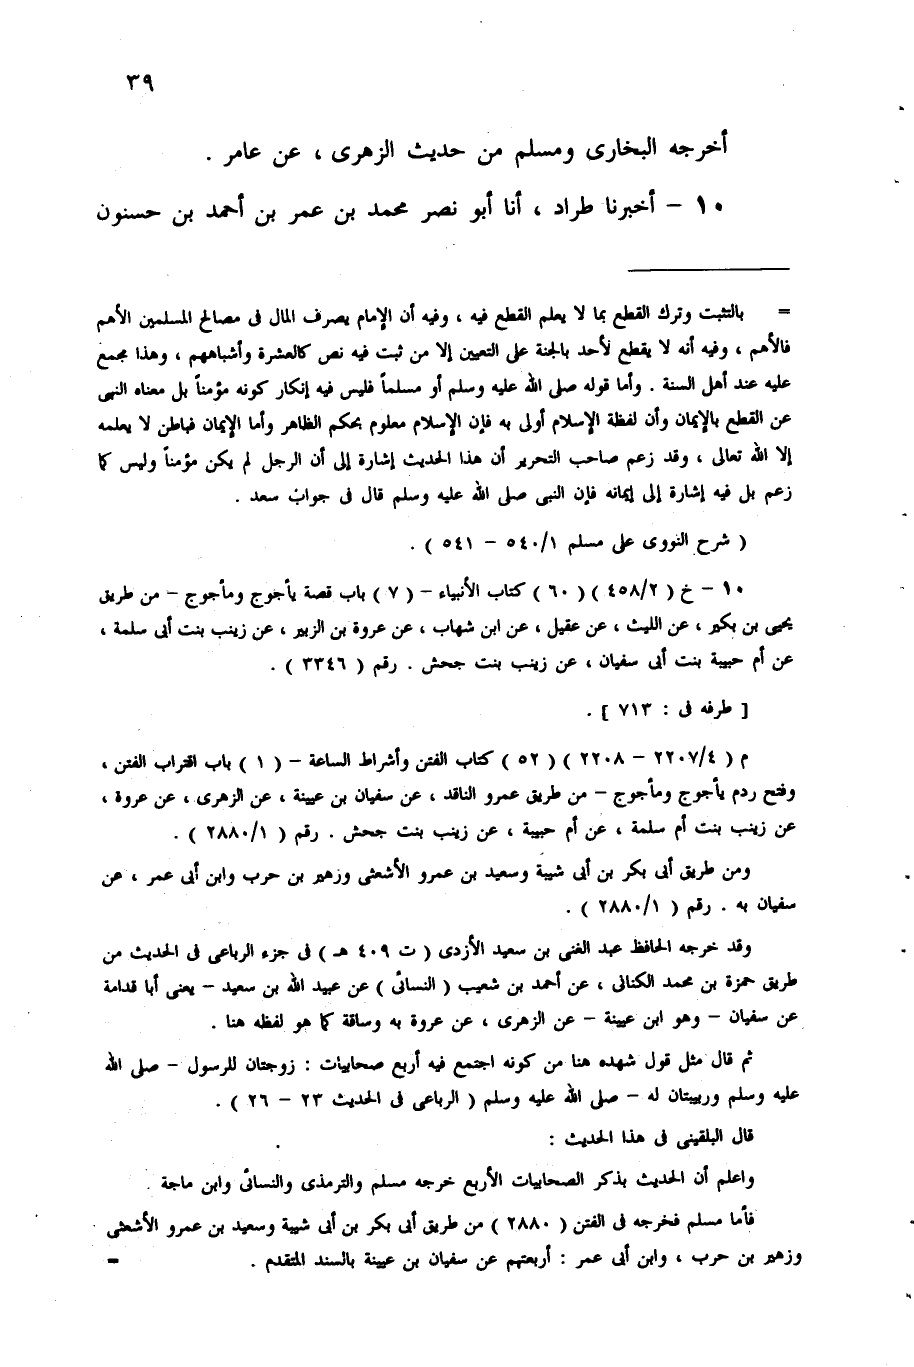 ٣٩
أخرجه البخارى ومسلم من حديث الزهرى ، عن عامر .
١٠ – أخبرنا طراد ، أنا أبو نصر محمد بن عمر بن أحمد بن حسنون
= بالتثبت وترك القطع بما لا يعلم القطع فيه ، وفيه أن الإمام يصرف المال فى مصالح المسلمين الأهم
فالأهم ، وفيه أنه لا يقطع لأحد بالجنة على التعيين إلا من ثبت فيه نص كالعشرة وأشباههم ، وهذا مجمع
عليه عند أهل السنة . وأما قوله صلى الله عليه وسلم أو مسلماً فليس فيه إنكار كونه مؤمناً بل معناه النهى
عن القطع بالإيمان وأن لفظة الإسلام أولى به فإن الإسلام معلوم بحكم الظاهر وأما الإيمان فباطن لا يعلمه
إلا الله تعالى ، وقد زعم صاحب التحرير أن هذا الحديث إشارة إلى أن الرجل لم يكن مؤمناً وليس كما
زعم بل فيه إشارة إلى إيمانه فإن النبى صلى الله عليه وسلم قال فى جواب سعد .
( شرح النووى على مسلم ٥٤٠/١ – ٥٤١ ) .
١٠ – خ ( ٤٥٨/٢ ) ( ٦٠ ) كتاب الأنبياء – ( ٧ ) باب قصة يأجوج ومأجوج – من طريق
يحيى بن بكير ، عن الليث ، عن عقيل ، عن ابن شهاب ، عن عروة بن الزبير ، عن زينب بنت أبى سلمة ،
عن أم حبيبة بنت أبى سفيان ، عن زينب بنت جحش . رقم ( ٣٣٤٦ ) .
[ طرفه فى : ٧١٣ ] .
م ( ٢٢٠٧/٤ – ٢٢٠٨ ) ( ٥٢ ) كتاب الفتن وأشراط الساعة – ( ١ ) باب اقتراب الفتن ،
وفتح ردم يأجوج ومأجوج – من طريق عمرو الناقد ، عن سفيان بن عيينة ، عن الزهرى ، عن عروة ،
عن زينب بنت أم سلمة ، عن أم حبيبة ، عن زينب بنت جحش . رقم ( ٢٨٨٠/١ ) .
ومن طريق أبى بكر بن أبى شيبة وسعيد بن عمرو الأشعثى وزهير بن حرب وابن أبى عمر ، عن
سفيان به . رقم ( ٢٨٨٠/١ ) .
وقد خرجه الحافظ عبد الغنى بن سعيد الأزدى ( ت ٤٠٩ هـ ) فى جزء الرباعى فى الحديث من
طريق حمزة بن محمد الكنانى ، عن أحمد بن شعيب ( النسائى ) عن عبيد الله بن سعيد – يعنى أبا قدامة
عن سفيان – وهو ابن عيينة – عن الزهرى ، عن عروة به وساقة كما هو لفظه هنا .
ثم قال مثل قول شهده هنا من كونه اجتمع فيه أربع صحابيات : زوجتان للرسول – صلى الله
عليه وسلم وربيبتان له – صلى الله عليه وسلم ( الرباعى فى الحديث ٢٣ – ٢٦ ) .
قال البلقينى فى هذا الحديث :
واعلم أن الحديث بذكر الصحابيات الأربع خرجه مسلم والترمذى والنسائى وابن ماجة .
فأما مسلم فخرجه فى الفتن ( ٢٨٨٠ ) من طريق أبى بكر بن أبى شيبة وسعيد بن عمرو الأشعثى
وزهير بن حرب ، وابن أبى عمر : أربعتهم عن سفيان بن عيينة بالسند المتقدم . =